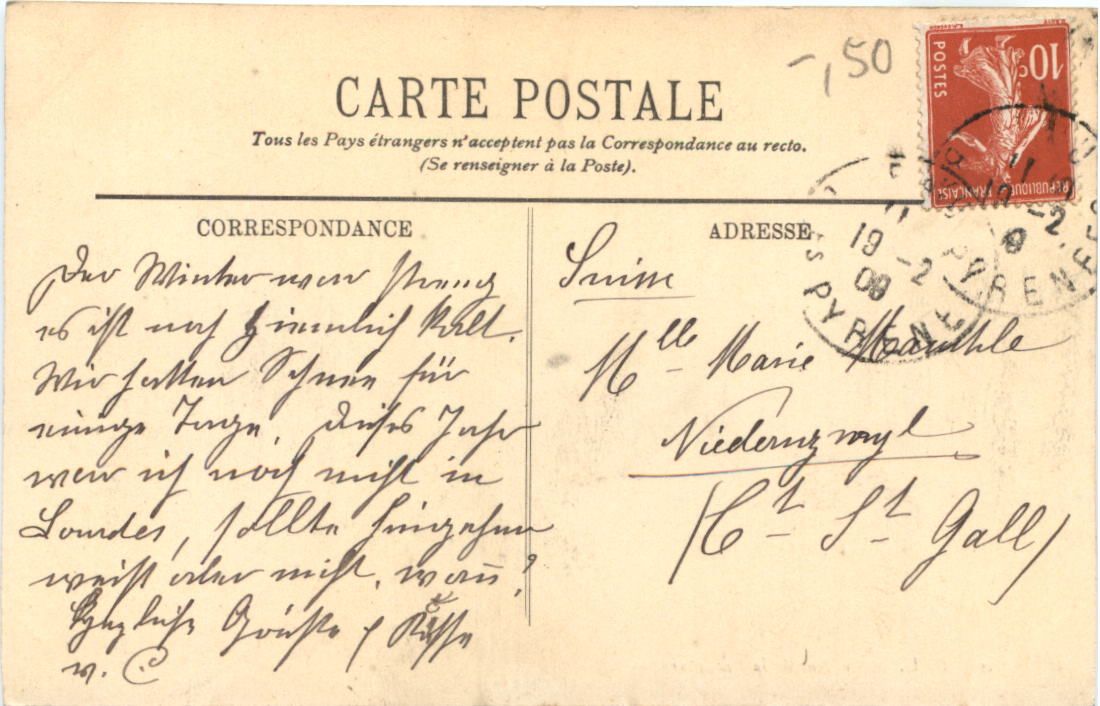 -,50
CARTE POSTALE
Tous les Pays étrangers n'acceptent pas la Correspondance au recto.
(Se renseigner à la Poste).
10c
POSTES
REPUBLIQUE FRANÇAISE
CORRESPONDANCE
Der Winter war streng
es ist noch ziemlich kalt.
Wir hatten Schnee für
einige Tage. Dieses Jahr
war ich noch nicht in
Lourdes, sollte hingehen
weiß aber nicht, wann?
Herzliche Grüße & Küsse
v. C
ADRESSE
Suisse
Mlle Marie
Niederuzwyl
(Ct. St. Gall)
11
19 -2
09
PYRENEES